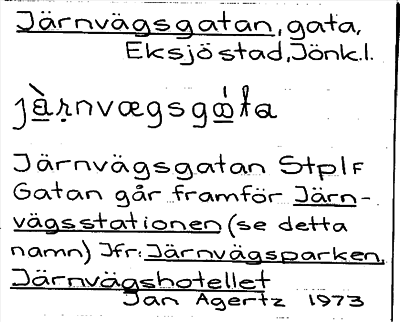 Järnvägsgatan, gata,
Eksjö stad, Jönk.l.
Järnvägsgatan StplF
Gatan går framför Järn-
vägsstationen (se detta
namn) Jfr: Järnvägsparken,
Järnvägshotellet
Jan Agertz 1973